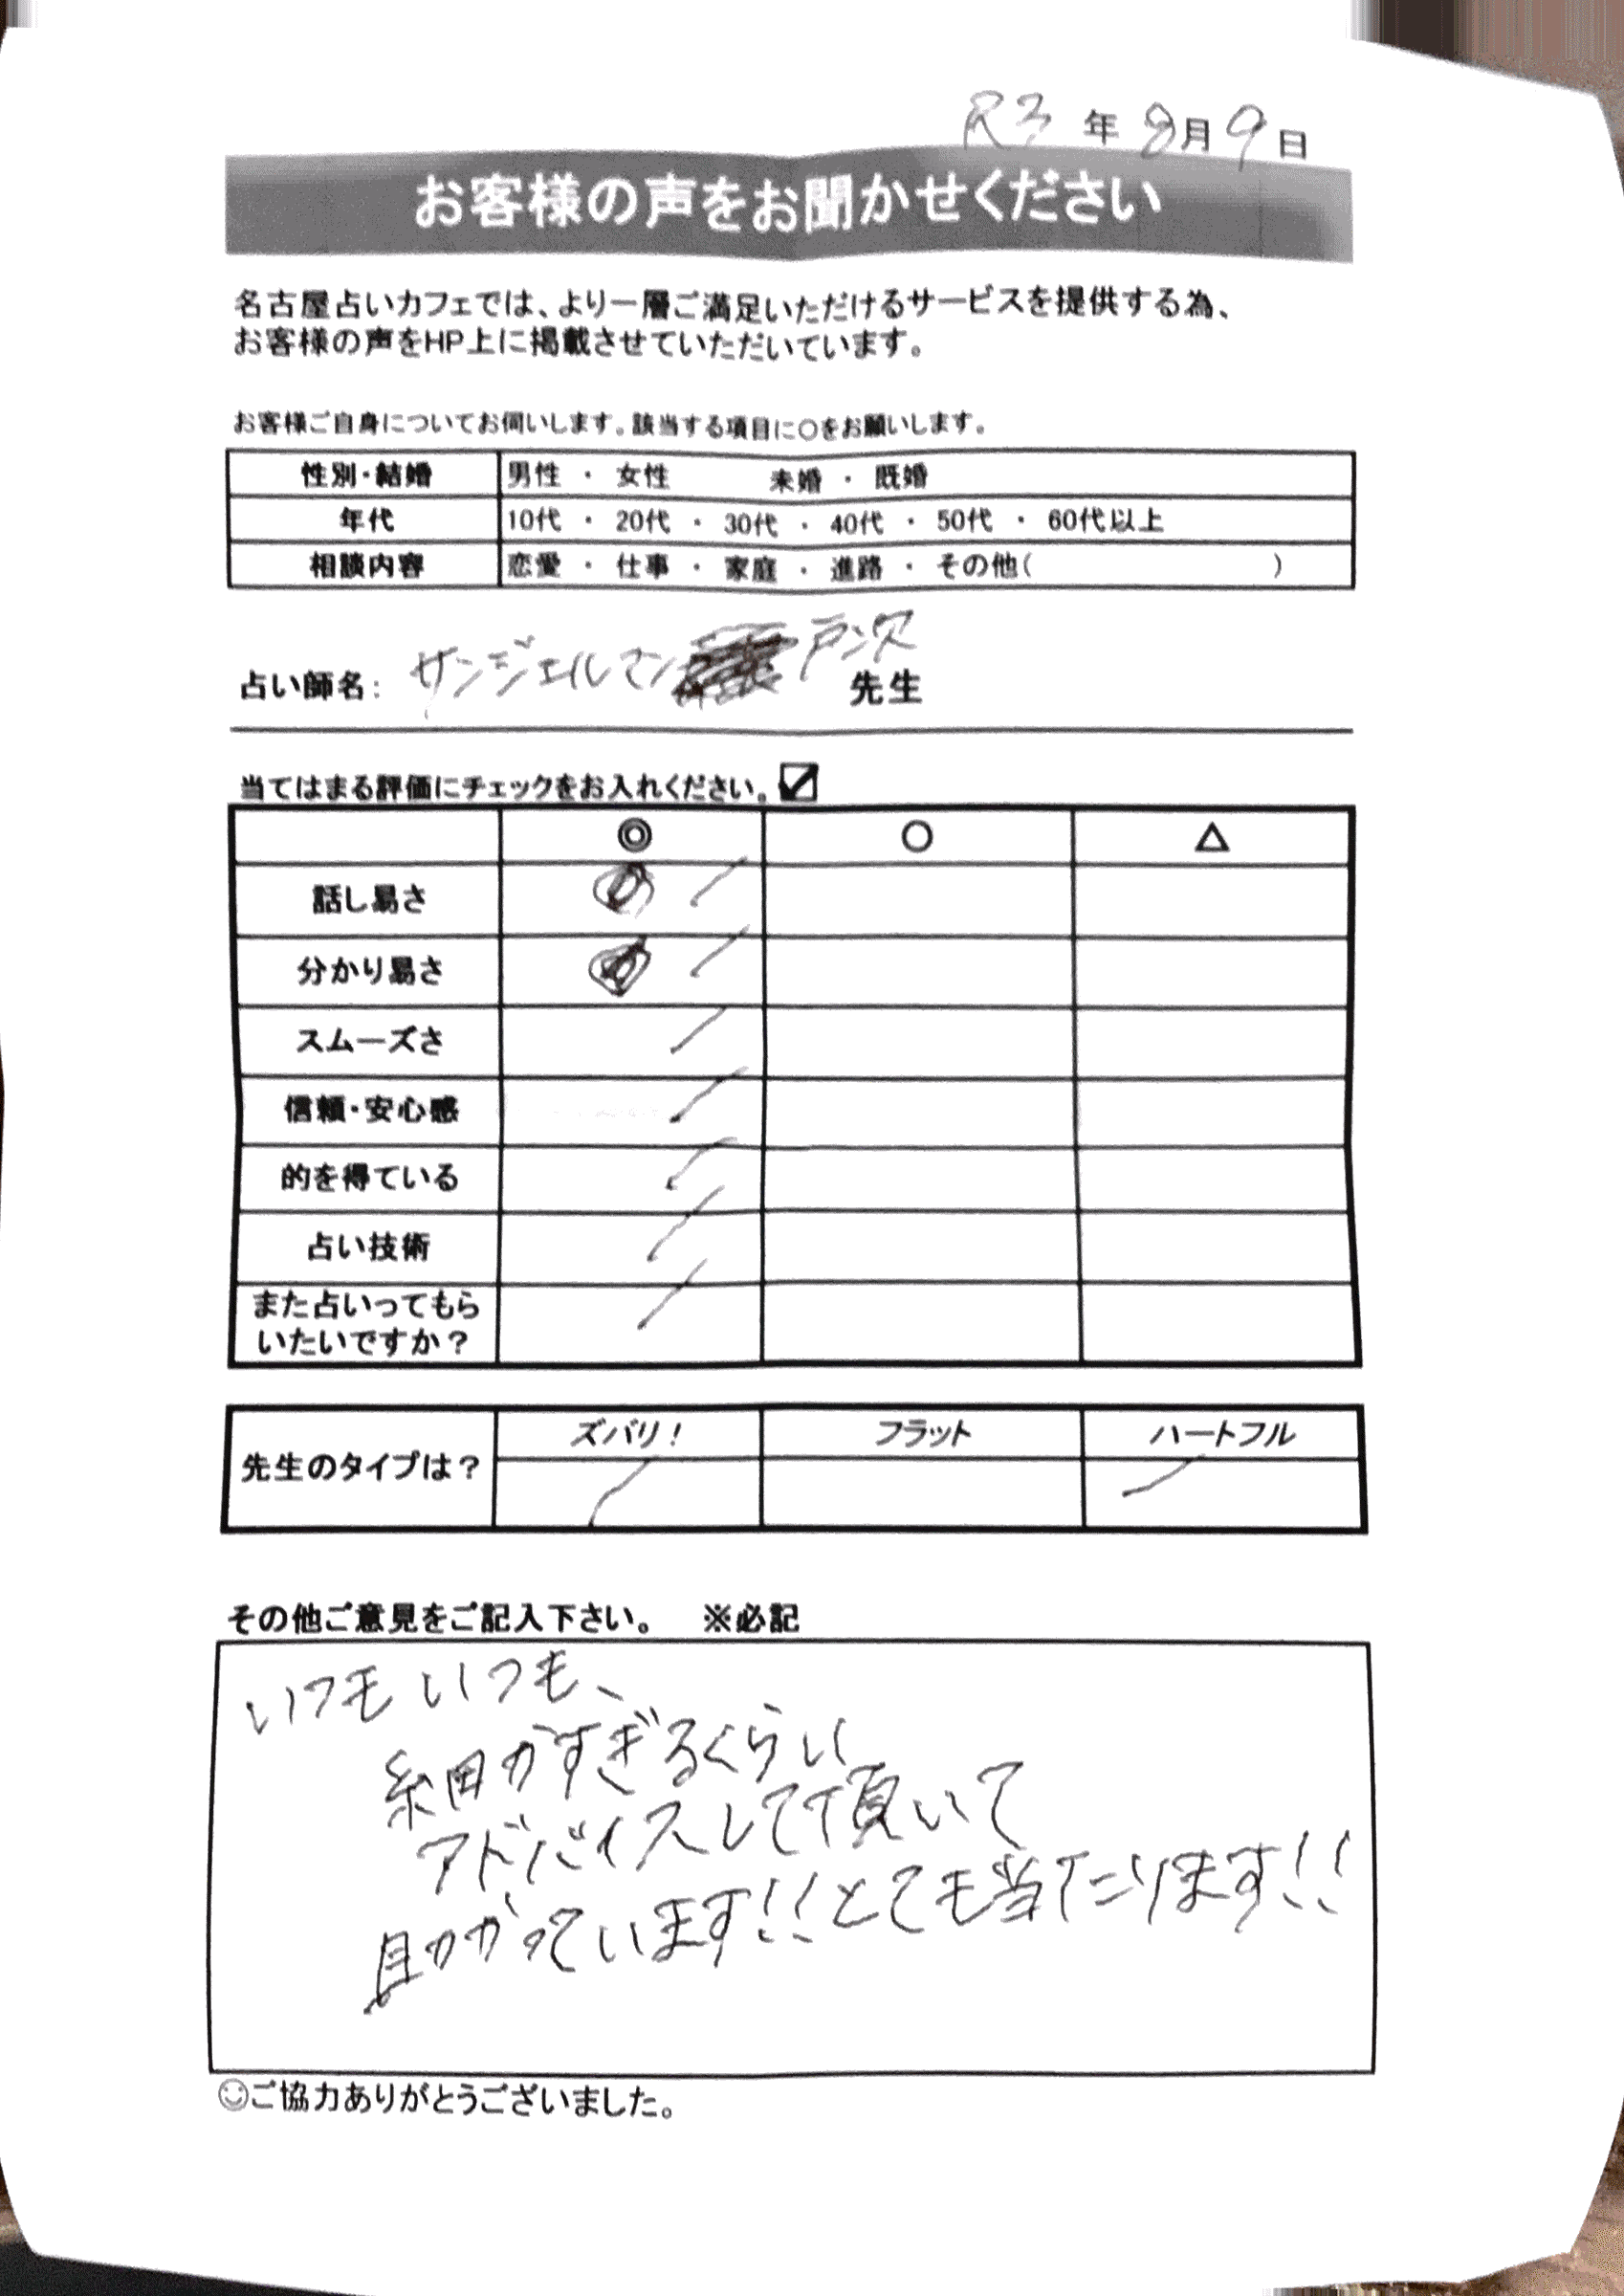 R3年8月9日
お客様の声をお聞かせください
名古屋占いカフェでは、より一層ご満足いただけるサービスを提供する為、
お客様の声をHP上に掲載させていただいています。
お客様ご自身についてお伺いします。該当する項目に○をお願いします。
性別・結婚 男性 ・ 女性 未婚 ・ 既婚
年代 10代 ・ 20代 ・ 30代 ・ 40代 ・ 50代 ・ 60代以上
相談内容 恋愛 ・ 仕事 ・ 家庭 ・ 進路 ・ その他( )
占い師名: サンジェルマン 先生
当てはまる評価にチェックをお入れください。☑
◎ ○ △
話し易さ
分かり易さ
スムーズさ
信頼・安心感
的を得ている
占い技術
また占いってもら
いたいですか？
先生のタイプは？ ズバリ！ フラット ハートフル
その他ご意見をご記入下さい。 ※必記
いつもいつも、
細かすぎるくらい
アドバイスして頂いて
助かっています!!とても当たります!!
☺ご協力ありがとうございました。